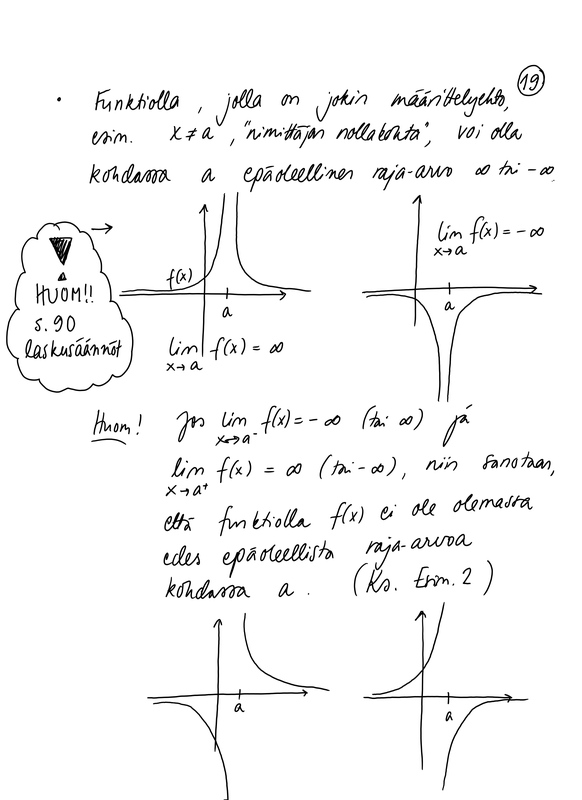 19
• Funktiolla, jolla on jokin määrittelyehto,
esim. x ≠ a, "nimittäjän nollakohta", voi olla
kohdassa a epäoleellinen raja-arvo ∞ tai -∞.
→
HUOM!!
s. 90
laskusäännöt
f(x)
a
lim f(x) = ∞
x→a
lim f(x) = -∞
x→a
a
Huom! Jos lim f(x) = -∞ (tai ∞) ja
x→a⁻
lim f(x) = ∞ (tai -∞), niin sanotaan,
x→a⁺
että funktiolla f(x) ei ole olemassa
edes epäoleellista raja-arvoa
kohdassa a. (Ks. Esim. 2)
a
a